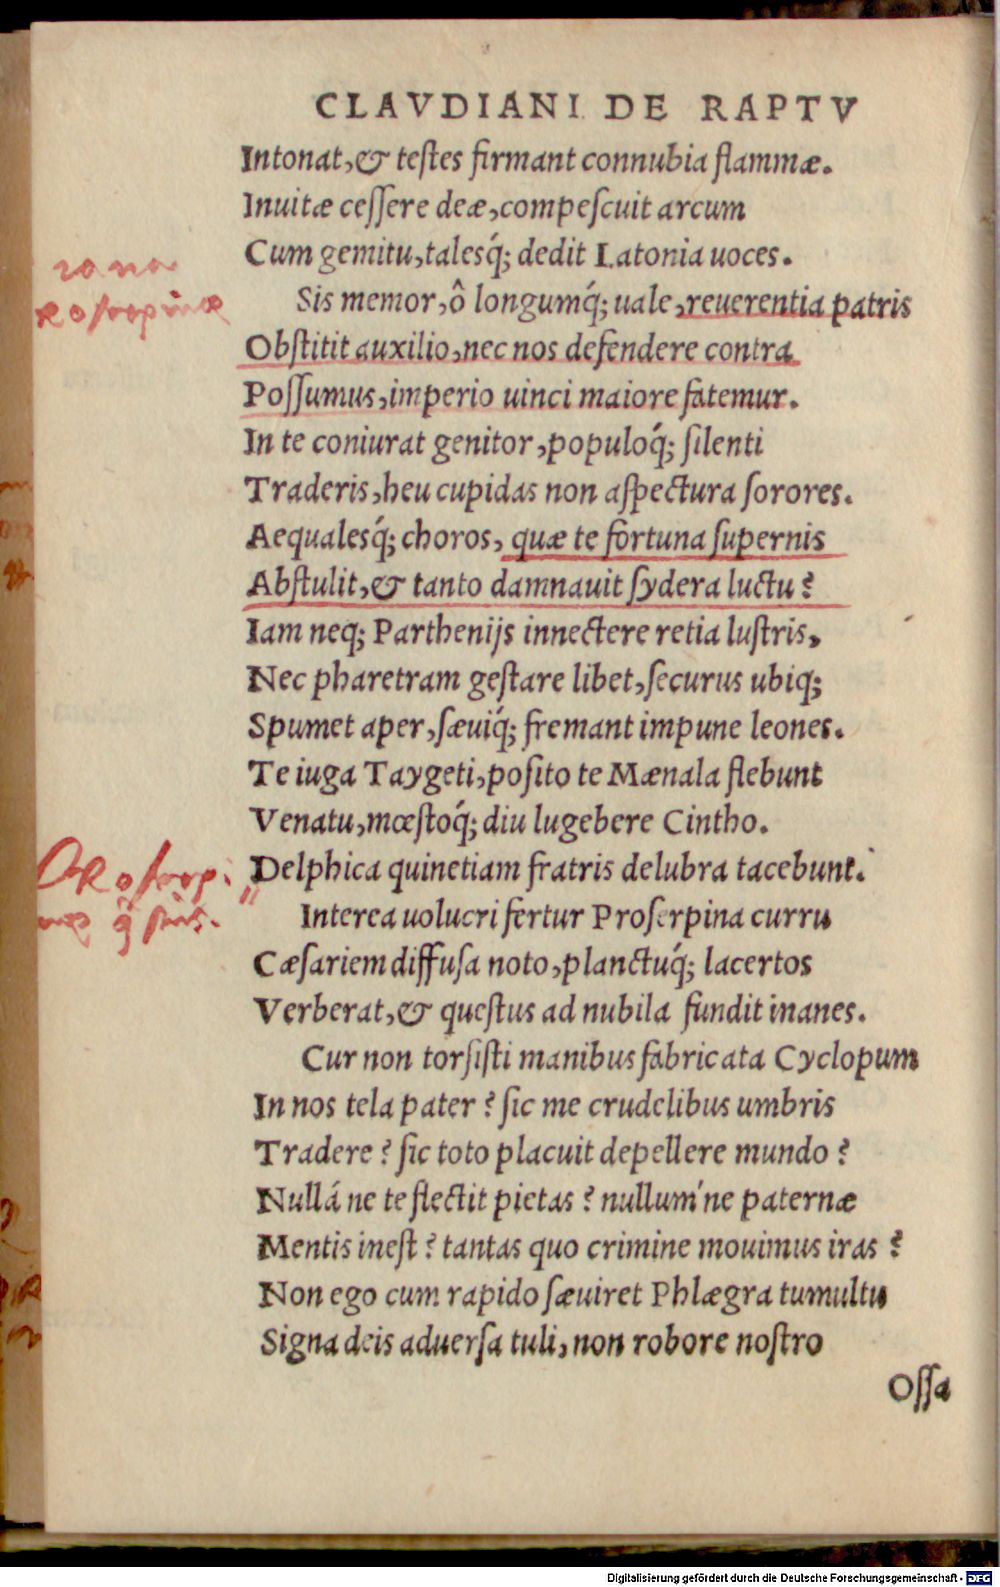 CLAVDIANI DE RAPTV
Intonat,& teſtes firmant connubia flammæ.
Inuitæ ceſſere deæ,compeſcuit arcum
Cum gemitu,talesq́; dedit Latonia uoces.
Sis memor,ô longumq́; uale,reuerentia patris
Obſtitit auxilio,nec nos defendere contra
Poſſumus,imperio uinci maiore fatemur.
In te coniurat genitor,populoq́; ſilenti
Traderis,heu cupidas non aſpectura ſorores.
Aequalesq́; choros, quæ te fortuna ſupernis
Abſtulit,& tanto damnauit ſydera luctu?
Iam neq; Parthenijs innectere retia luſtris,
Nec pharetram geſtare libet,ſecurus ubiq;
Spumet aper,ſæuiq́; fremant impune leones.
Te iuga Taygeti,poſito te Mænala flebunt
Venatu,mœſtoq́; diu lugebere Cintho.
Delphica quinetiam fratris delubra tacebunt.
Interea uolucri fertur Proſerpina curru
Cæſariem diffuſa noto,planctuq́; lacertos
Verberat,& queſtus ad nubila fundit inanes.
Cur non torſiſti manibus fabricata Cyclopum
In nos tela pater? ſic me crudelibus umbris
Tradere? ſic toto placuit depellere mundo?
Nullá ne te flectit pietas? nullum'ne paternæ
Mentis ineſt? tantas quo crimine mouimus iras?
Non ego cum rapido ſæuiret Phlægra tumultu
Signa deis aduerſa tuli,non robore noſtro
Oſſa
Digitalisierung gefördert durch die Deutsche Forschungsgemeinschaft - DFG